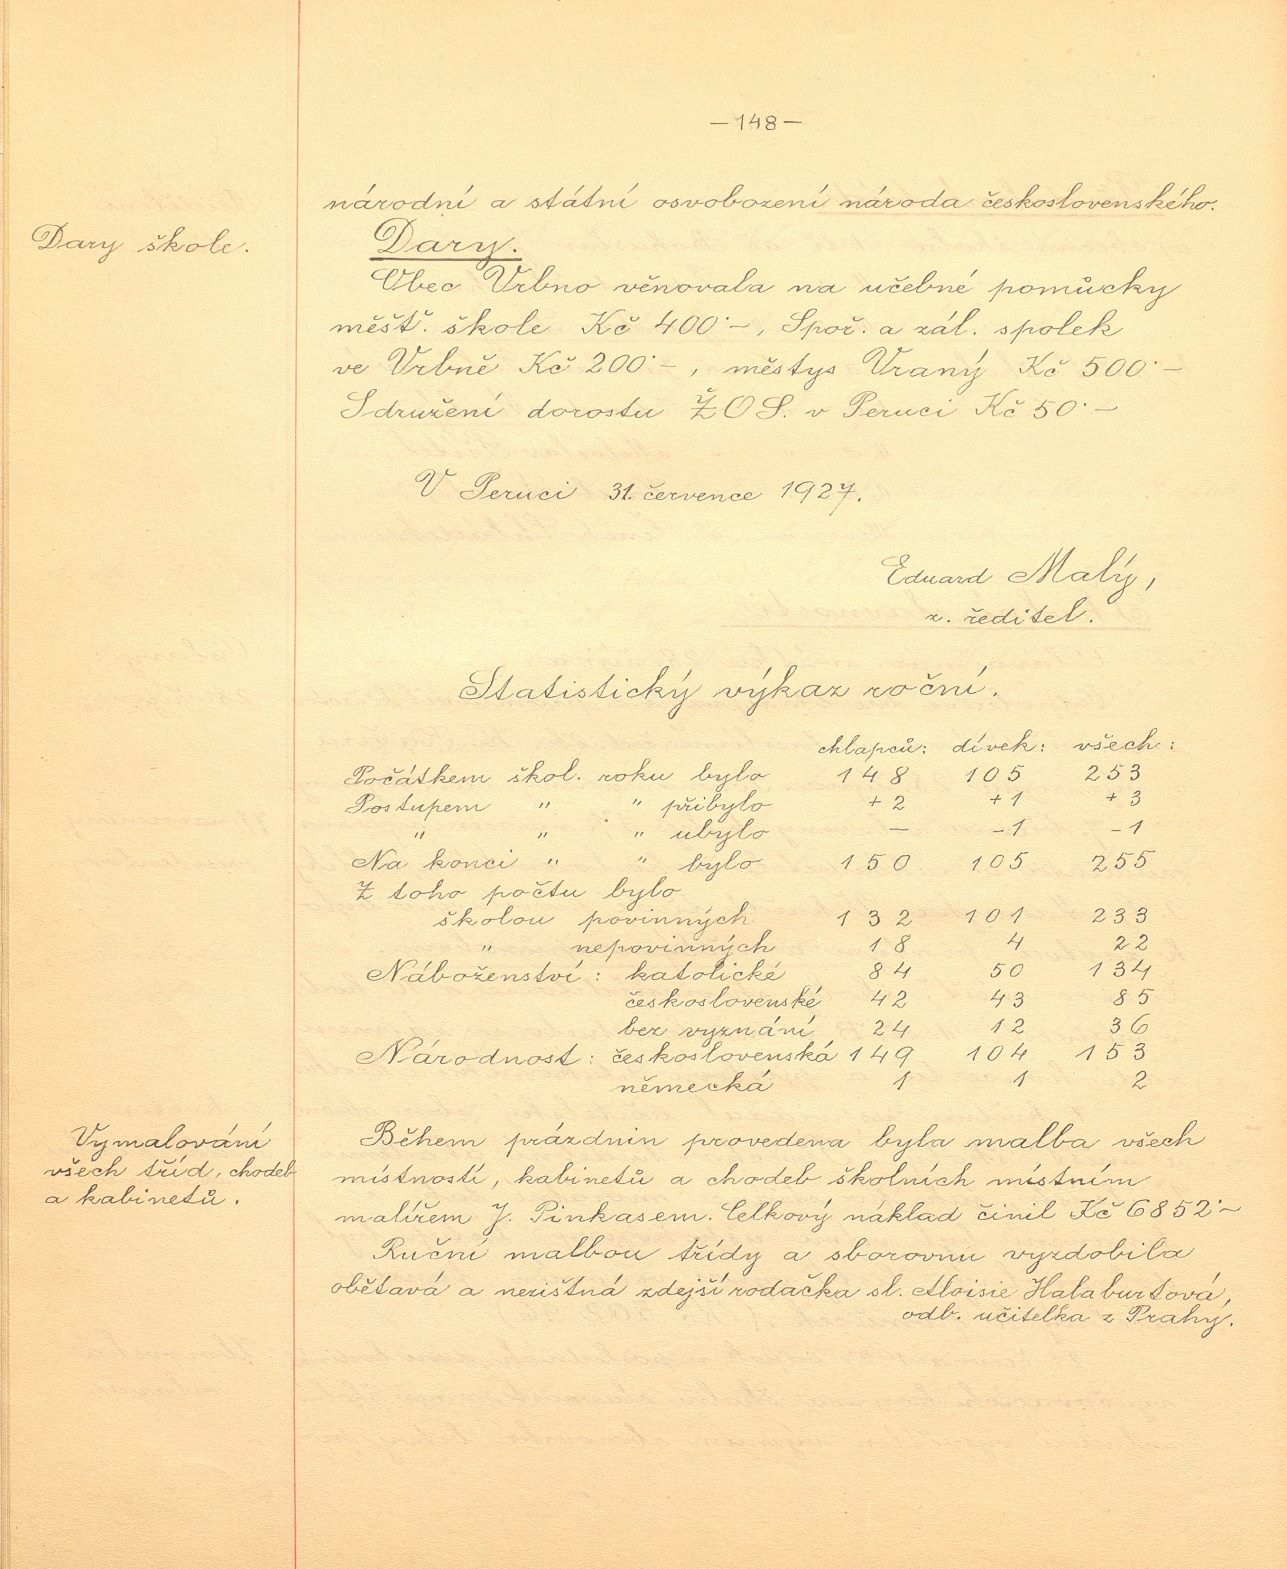 —148—
národní a státní osvobození národa československého.
Dary škole.
Dary.
Obec Vrbno věnovala na učebné pomůcky
měšť. škole Kč 400·—, Spoř. a zál. spolek
ve Vrbně Kč 200·—, městys Vraný Kč 500·—
Sdružení dorostu ŽOS. v Peruci Kč 50·—
V Peruci 31. července 1927.
Eduard Malý,
z. ředitel.
Statistický výkaz roční.
chlapců: dívek: všech:
Počátkem škol. roku bylo 148 105 253
Postupem " " přibylo +2 +1 +3
" " " ubylo — -1 -1
Na konci " " bylo 150 105 255
Z toho počtu bylo
školou povinných 132 101 233
" nepovinných 18 4 22
Náboženství: katolické 84 50 134
československé 42 43 85
bez vyznání 24 12 36
Národnost: československá 149 104 153
německá 1 1 2
Vymalování
všech tříd, chodeb
a kabinetů.
Během prázdnin provedena byla malba všech
místností, kabinetů a chodeb školních místním
malířem J. Pinkasem. Celkový náklad činil Kč 6852·—
Ruční malbou třídy a sborovnu vyzdobila
obětavá a nezištná zdejší rodačka sl. Aloisie Halaburtová,
odb. učitelka z Prahy.